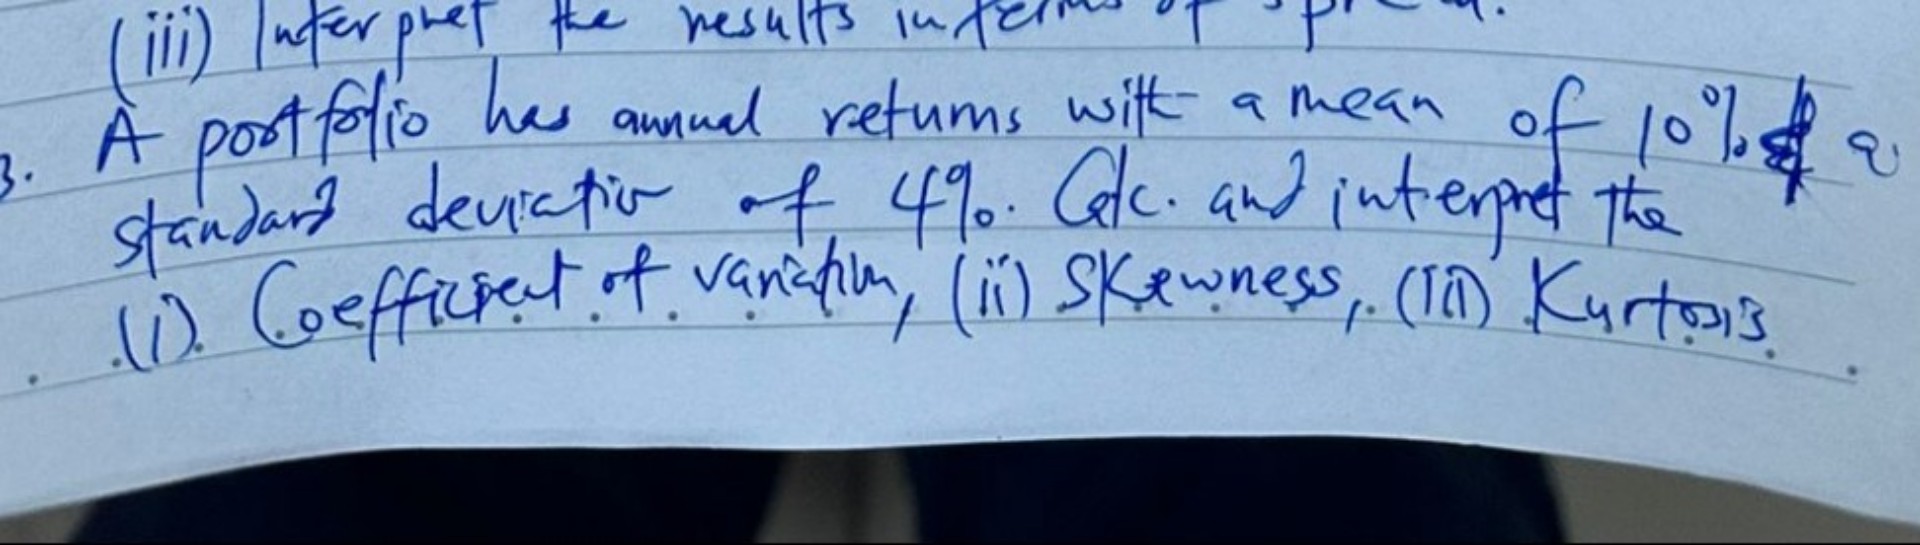 (iii) Interpret the results in terms of spread.
3. A portfolio has annual returns with a mean of 10% & a
standard deviation of 4%. Calc. and interpret the
(i). Coefficient of variation, (ii) Skewness, (iii) Kurtosis.